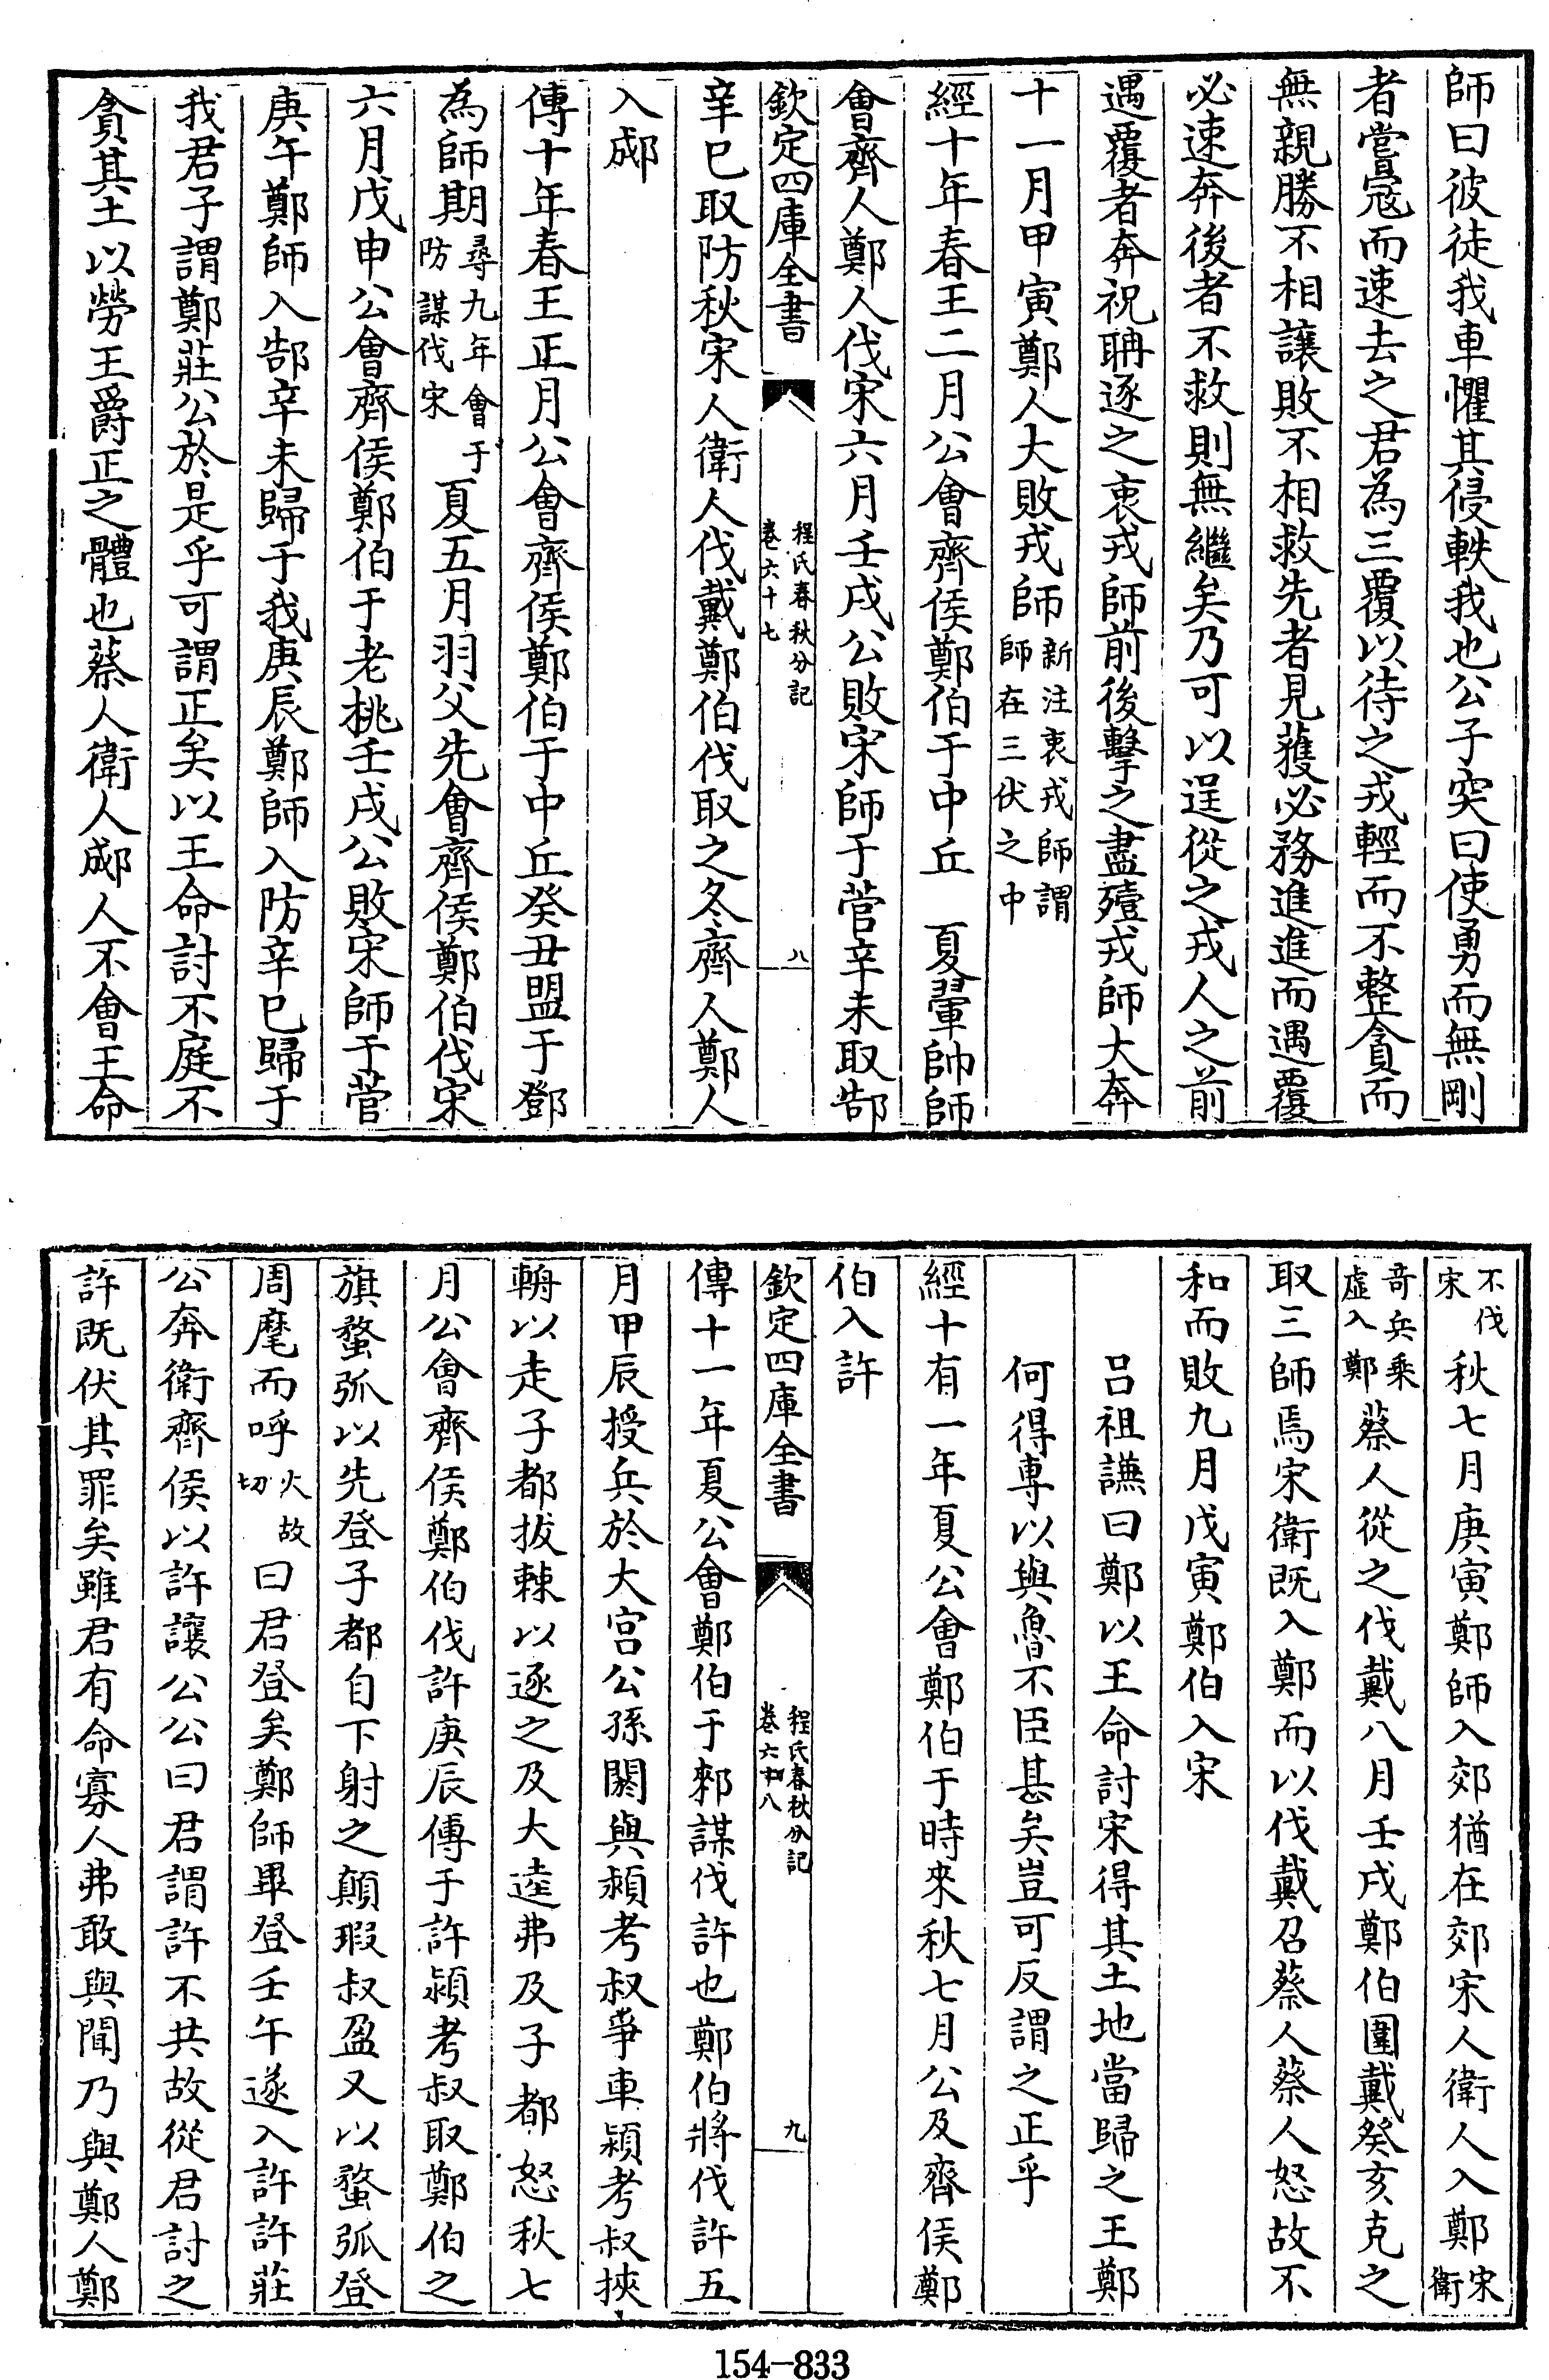 師曰彼徒我車懼其侵軼我也公子突曰使勇而無剛
者嘗寇而速去之君為三覆以待之戎輕而不整貪而
無親勝不相讓敗不相救先者見獲必務進進而遇覆
必速奔後者不救則無繼矣乃可以逞從之戎人之前
遇覆者奔祝聃逐之衷戎師前後擊之盡殪戎師大奔
十一月甲寅鄭人大敗戎師新注衷戎師謂師在三伏之中
經十年春王二月公會齊侯鄭伯于中丘 夏翬帥師
會齊人鄭人伐宋六月壬戌公敗宋師于菅辛未取郜
欽定四庫全書 程氏春秋分記 卷六十七 八
辛巳取防秋宋人衛人伐戴鄭伯伐取之冬齊人鄭人
入郕
傳十年春王正月公會齊侯鄭伯于中丘癸丑盟于鄧
為師期尋九年會于防謀伐宋夏五月羽父先會齊侯鄭伯伐宋
六月戊申公會齊侯鄭伯于老桃壬戌公敗宋師于菅
庚午鄭師入郜辛未歸于我庚辰鄭師入防辛巳歸于
我君子謂鄭莊公於是乎可謂正矣以王命討不庭不
貪其土以勞王爵正之體也蔡人衛人郕人不會王命
不伐宋秋七月庚寅鄭師入郊猶在郊宋人衛人入鄭宋衛
奇兵乘虛入鄭蔡人從之伐戴八月壬戌鄭伯圍戴癸亥克之
取三師焉宋衛既入鄭而以伐戴召蔡人蔡人怒故不
和而敗九月戊寅鄭伯入宋
呂祖謙曰鄭以王命討宋得其土地當歸之王鄭
何得專以與魯不臣甚矣豈可反謂之正乎
經十有一年夏公會鄭伯于時來秋七月公及齊侯鄭
伯入許
欽定四庫全書 程氏春秋分記 卷六十八 九
傳十一年夏公會鄭伯于郲謀伐許也鄭伯將伐許五
月甲辰授兵於大宮公孫閼與潁考叔爭車潁考叔挾
輈以走子都拔棘以逐之及大逵弗及子都怒秋七
月公會齊侯鄭伯伐許庚辰傅于許潁考叔取鄭伯之
旗蝥弧以先登子都自下射之顛瑕叔盈又以蝥弧登
周麾而呼火故切曰君登矣鄭師畢登壬午遂入許許莊
公奔衛齊侯以許讓公公曰君謂許不共故從君討之
許既伏其罪矣雖君有命寡人弗敢與聞乃與鄭人鄭
154-833